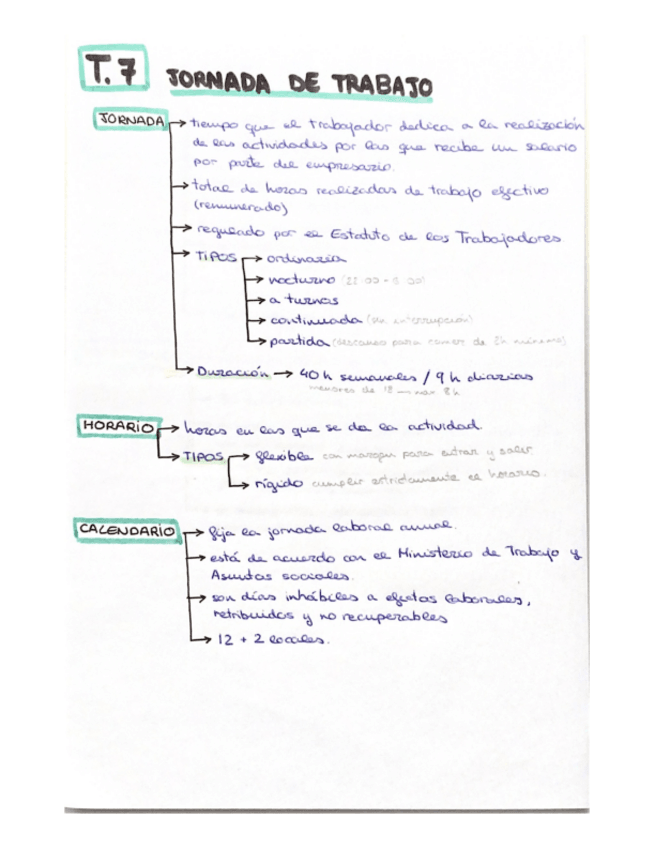 T.7 JORNADA DE TRABAJO
JORNADA → tiempo que el trabajador dedica a la realización
de las actividades por las que recibe un salario
por parte del empresario.
→ total de horas realizadas de trabajo efectivo
(remunerado)
→ regulado por el Estatuto de los Trabajadores
→ TIPOS → ordinaria
→ nocturno (22:00 - 6:00)
→ a turnos
→ continuada (sin interrupción)
→ partida (descanso para comer de 2h mínimo)
→ Duración → 40 h semanales / 9 h diarias
menores de 18 → max 8h
HORARIO → horas en las que se da la actividad.
→ TIPOS → flexible con margen para entrar y salir
→ rígido cumplir estrictamente el horario.
CALENDARIO → fija la jornada laboral anual.
→ está de acuerdo con el Ministerio de Trabajo y
Asuntos sociales.
→ son días inhábiles a efectos laborales,
retribuidos y no recuperables
→ 12 + 2 locales.